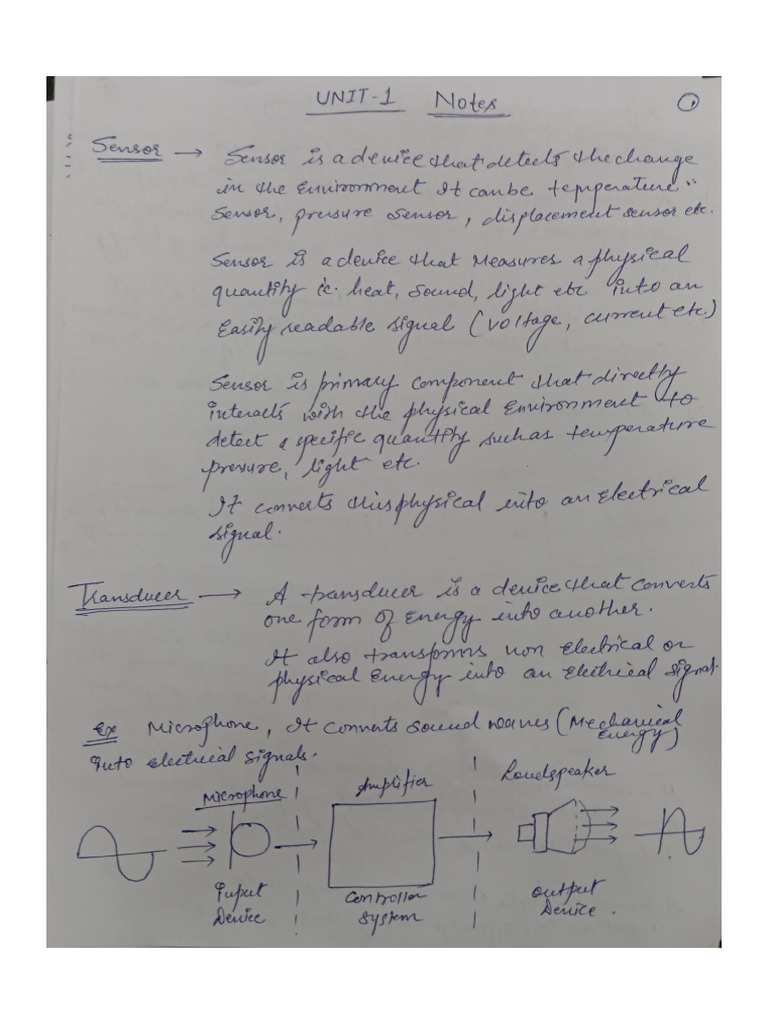 UNIT-1 Notes 1
Sensor → Sensor is a device that detects the change
in the Environment It can be temperature
Sensor, pressure sensor, displacement sensor etc.
Sensor is a device that Measures a physical
quantity ie. heat, Sound, light etc into an
Easily readable signal (voltage, current etc.)
Sensor is primary component that directly
interacts with the physical Environment to
detect a specific quantity such as temperature
pressure, light etc.
It converts this physical into an Electrical
signal.
Transducer → A transducer is a device that converts
one form of Energy into another.
It also transforms non Electrical or
physical Energy into an Electrical signal.
Ex Microphone, It converts Sound waves (Mechanical
Energy)
into electrical signals.
Microphone Amplifier Loudspeaker
input Controller output
Device System Device.